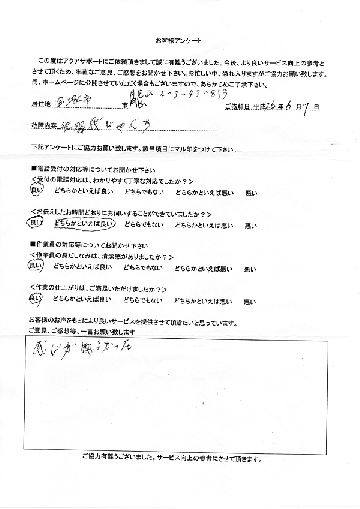 お客様アンケート
この度はアクアサポートにご依頼頂きまして誠に有難うございました。今後、より良いサービス向上の参考と
させて頂くため、率直なご意見、ご感想をお聞かせ下さい。お忙しい中、恐れ入りますがご協力お願い致します。
尚、ホームページに公開させていただく場合もございますので、あらかじめご了承下さい。
居住地
ご依頼日 平成26年6月7日
作業内容
下記アンケートにご協力お願い致します。該当項目にマル印をつけて下さい。
■電話受付の対応等についてお聞かせ下さい
<受付の電話対応は、わかりやすく丁寧な対応でしたか？>
良い どちらかといえば良い どちらでもない どちらかといえば悪い 悪い
<お伝えしたお時間どおりにお伺いすることができていましたか？>
良い どちらかといえば良い どちらでもない どちらかといえば悪い 悪い
■作業員の対応等についてお聞かせ下さい
<作業員の身だしなみは、清潔感がありましたか？>
良い どちらかといえば良い どちらでもない どちらかといえば悪い 悪い
<作業の仕上がりは、ご満足いただけましたか？>
良い どちらかといえば良い どちらでもない どちらかといえば悪い 悪い
お客様の御声をもとにより良いサービスを提供させて頂きたいと思っています。
ご意見、ご感想等、一言お願い致します
感じが良かった
ご協力有難うございました。サービス向上の参考にさせて頂きます。